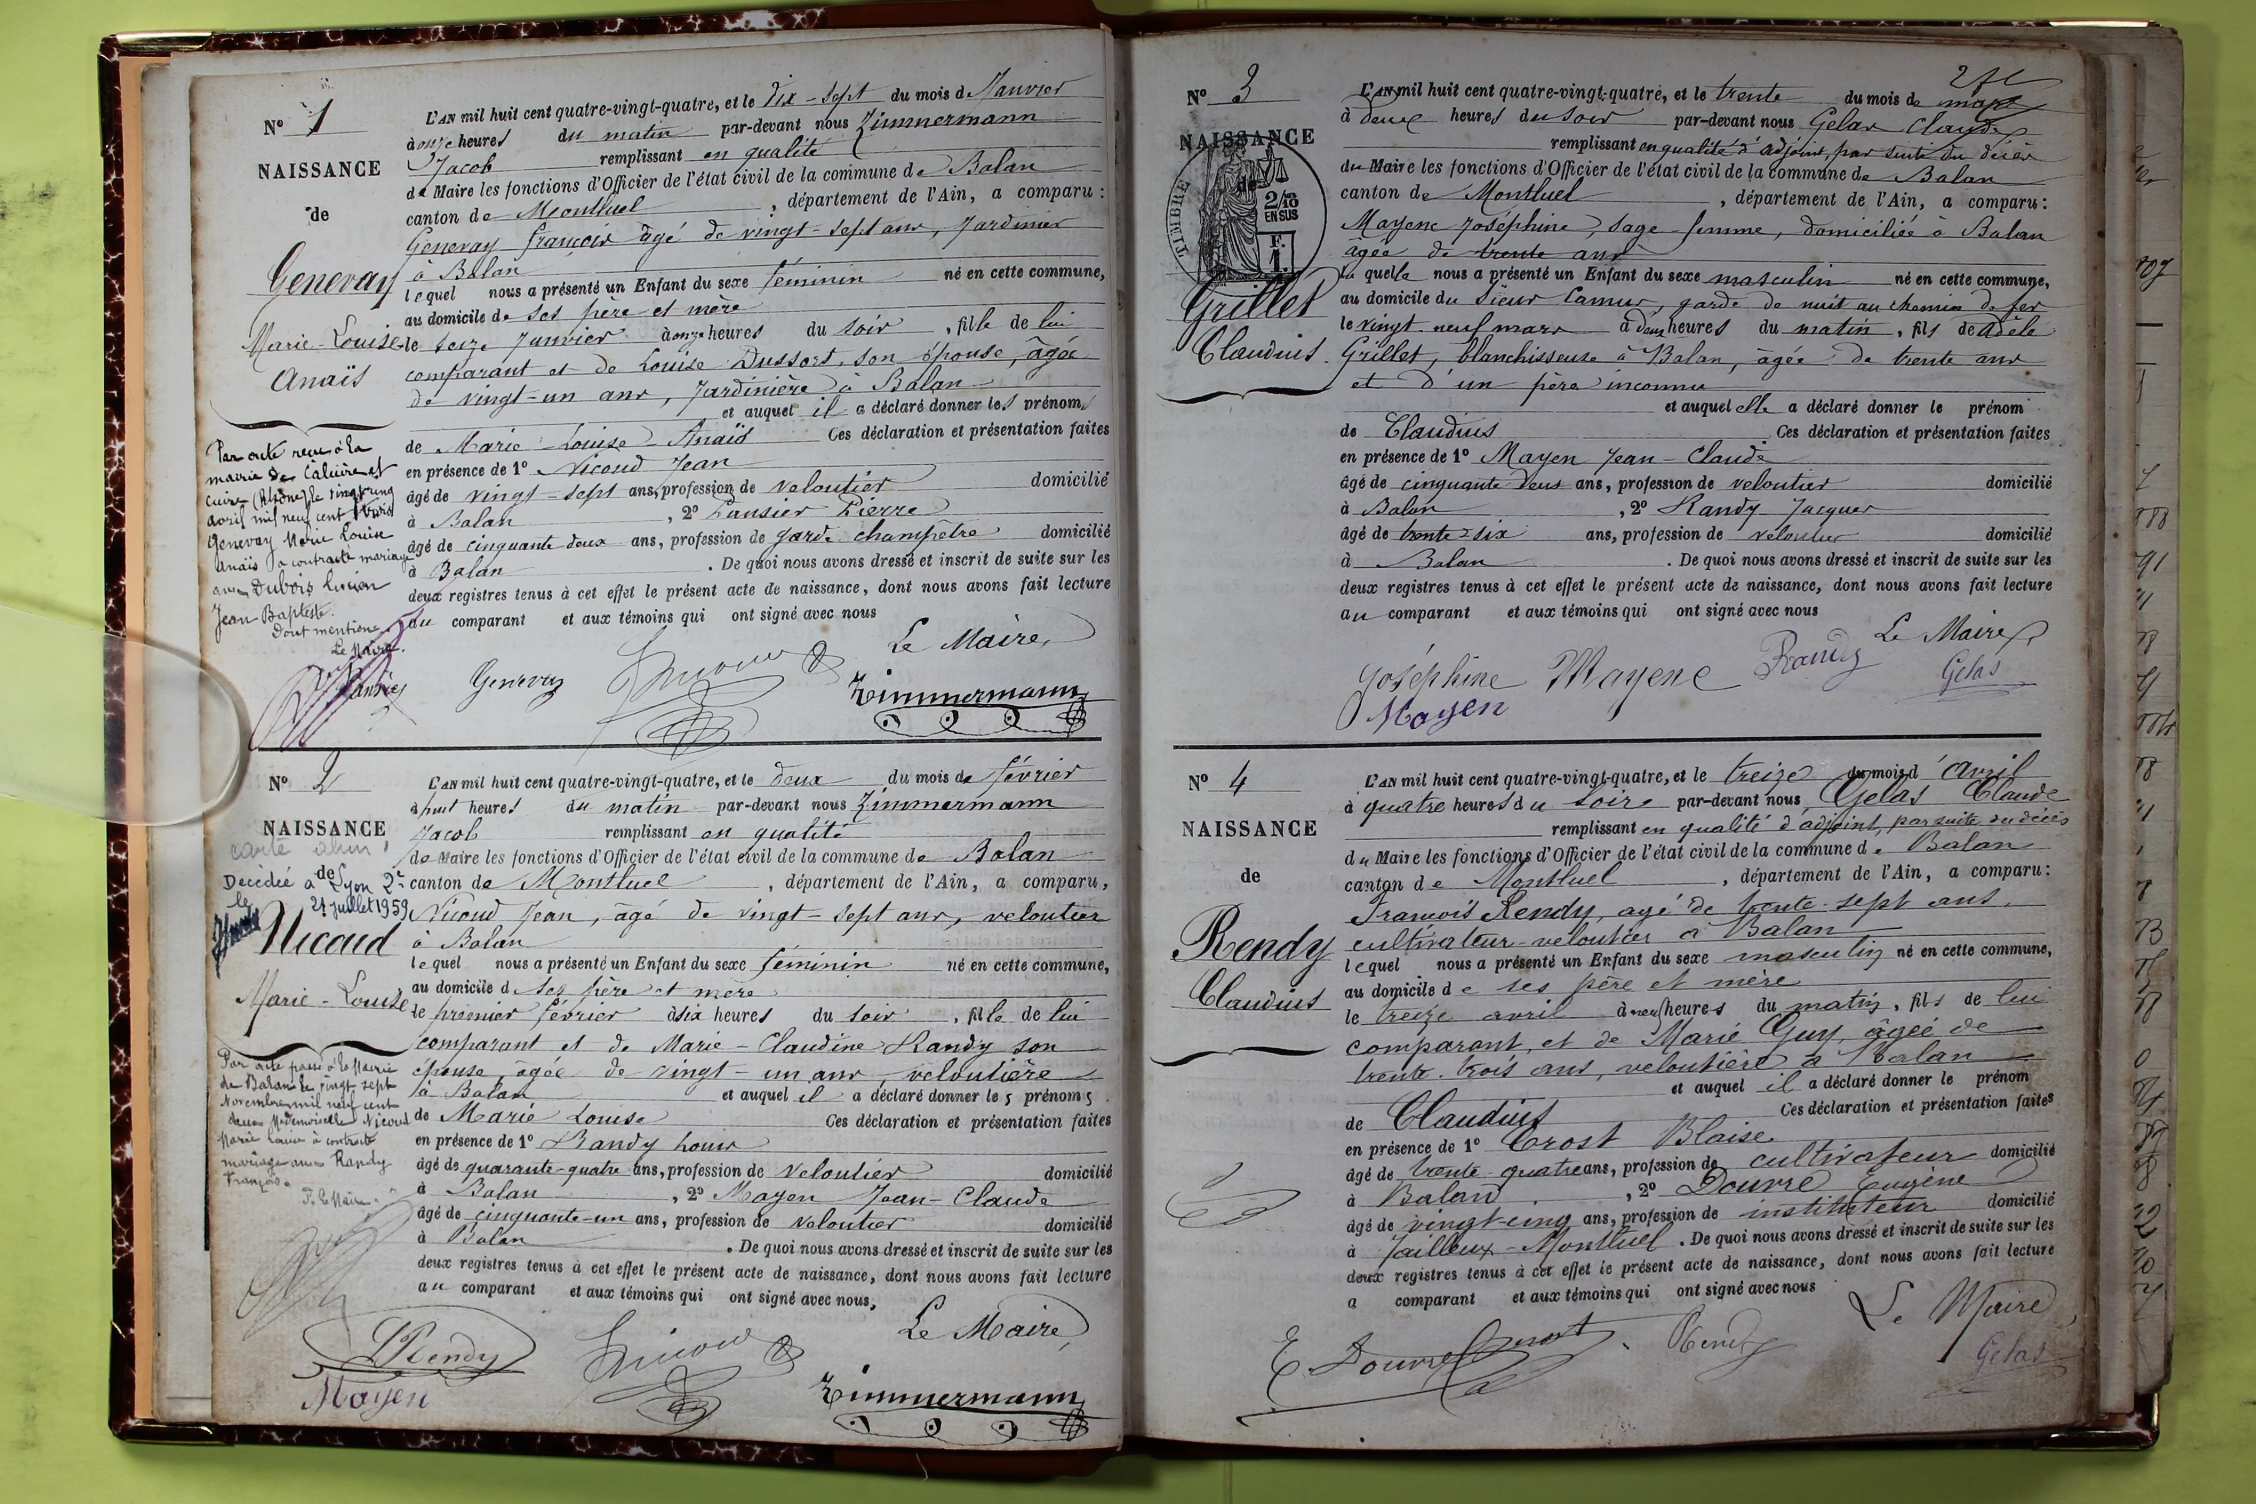 N° 1
NAISSANCE
de
Genevay
Marie-Louise
Anaïs
L'AN mil huit cent quatre-vingt-quatre, et le dix-sept du mois de Janvier
à onze heures du matin par-devant nous Zimmermann
Jacob remplissant en qualité
de Maire les fonctions d'Officier de l'état civil de la commune de Balan
canton de Montluel, département de l'Ain, a comparu :
Genevay françois âgé de vingt-sept ans, Jardinier
à Balan
lequel nous a présenté un Enfant du sexe féminin né en cette commune,
au domicile de ses père et mère
le seize Janvier à onze heures du soir, fille de lui
comparant et de Louise Dussort, son épouse, âgée
de vingt-un ans, Jardinière à Balan
et auquel il a déclaré donner les prénoms
de Marie-Louise-Anaïs Ces déclaration et présentation faites
en présence de 1° Nicoud Jean
âgé de vingt-sept ans, profession de veloutier domicilié
à Balan, 2° Pierre
âgé de cinquante deux ans, profession de garde champêtre domicilié
à Balan. De quoi nous avons dressé et inscrit de suite sur les
deux registres tenus à cet effet le présent acte de naissance, dont nous avons fait lecture
au comparant et aux témoins qui ont signé avec nous
Le Maire,
Genevay
Zimmermann
Par acte reçu à la
mairie de Caluire et
Cuire (Rhône) le vingt-cinq
avril mil neuf cent trois
Genevay Marie Louise
Anaïs a contracté mariage
avec Dubois Lucien
Jean Baptiste.
Dont mention.
Le Maire.
N° 2
NAISSANCE
de
Décédée à Lyon 2e
le 21 juillet 1959
Nicoud
Marie-Louise
L'AN mil huit cent quatre-vingt-quatre, et le deux du mois de février
à huit heures du matin par-devant nous Zimmermann
Jacob remplissant en qualité
de Maire les fonctions d'Officier de l'état civil de la commune de Balan
canton de Montluel, département de l'Ain, a comparu,
Nicoud Jean, âgé de vingt-sept ans, veloutier
à Balan
lequel nous a présenté un Enfant du sexe féminin né en cette commune,
au domicile de ses père et mère
le premier février à six heures du soir, fille de lui
comparant et de Marie-Claudine Randy son
épouse, âgée de vingt-un ans, veloutière
à Balan et auquel il a déclaré donner les prénoms
de Marie Louise Ces déclaration et présentation faites
en présence de 1° Randy Louis
âgé de quarante-quatre ans, profession de veloutier domicilié
à Balan, 2° Mayen Jean-Claude
âgé de cinquante-un ans, profession de veloutier domicilié
à Balan. De quoi nous avons dressé et inscrit de suite sur les
deux registres tenus à cet effet le présent acte de naissance, dont nous avons fait lecture
au comparant et aux témoins qui ont signé avec nous,
Le Maire,
Rendy
Mayen
Zimmermann
Par acte passé à la Mairie
de Balan le vingt-sept
Novembre mil neuf cent
deux Mademoiselle Nicoud
Marie Louise à contracté
mariage avec Randy
François.
P. le Maire.
N° 3
NAISSANCE
de
TIMBRE
2/10
EN SUS
F.
1.
Grillet
Claudius.
L'AN mil huit cent quatre-vingt-quatre, et le trente du mois de mars
à deux heures du soir par-devant nous Gelas Claude
remplissant en qualité d'adjoint, par suite du décès
du Maire les fonctions d'Officier de l'état civil de la commune de Balan
canton de Montluel, département de l'Ain, a comparu :
Mayenc Joséphine, sage-femme, domiciliée à Balan
âgée de trente ans
la quelle nous a présenté un Enfant du sexe masculin né en cette commune,
au domicile du sieur Camus, garde de nuit au chemin de fer
le vingt-neuf mars à deux heures du matin, fils de Adèle
Grillet, blanchisseuse à Balan, âgée de trente ans
et d'un père inconnu
et auquel elle a déclaré donner le prénom
de Claudius Ces déclaration et présentation faites
en présence de 1° Mayen Jean-Claude
âgé de cinquante deux ans, profession de veloutier domicilié
à Balan, 2° Randy Jacques
âgé de trente-six ans, profession de veloutier domicilié
à Balan. De quoi nous avons dressé et inscrit de suite sur les
deux registres tenus à cet effet le présent acte de naissance, dont nous avons fait lecture
au comparant et aux témoins qui ont signé avec nous
Le Maire,
Joséphine Mayenc Randy Gelas
Mayen
N° 4
NAISSANCE
de
Rendy
Claudius
L'AN mil huit cent quatre-vingt-quatre, et le treize du mois d'Avril
à quatre heures du soire par-devant nous, Gelas Claude
remplissant en qualité d'adjoint, par suite du décès
du Maire les fonctions d'Officier de l'état civil de la commune de Balan
canton de Montluel, département de l'Ain, a comparu :
François Rendy, agé de trente-sept ans.
cultivateur-veloutier à Balan
lequel nous a présenté un Enfant du sexe masculin né en cette commune,
au domicile de ses père et mère
le treize avril à neuf heures du matin, fils de lui
comparant, et de Marie Guy, âgée de
trente-trois ans, veloutière à Balan
et auquel il a déclaré donner le prénom
de Claudius Ces déclaration et présentation faites
en présence de 1° Crost Blaise
âgé de trente-quatre ans, profession de cultivateur domicilié
à Balan, 2° Douvre Eugène
âgé de vingt-cinq ans, profession de instituteur domicilié
à Jailleux-Montluel. De quoi nous avons dressé et inscrit de suite sur les
deux registres tenus à cet effet le présent acte de naissance, dont nous avons fait lecture
a comparant et aux témoins qui ont signé avec nous
Le Maire,
E. Douvre Crost Rendy Gelas